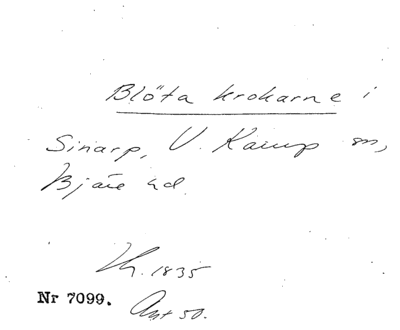 Blöta krokarne i
Sinarp, V. Karup sn,
Bjäre hd.
Lh. 1835
Nr 7099.
Avt 50.